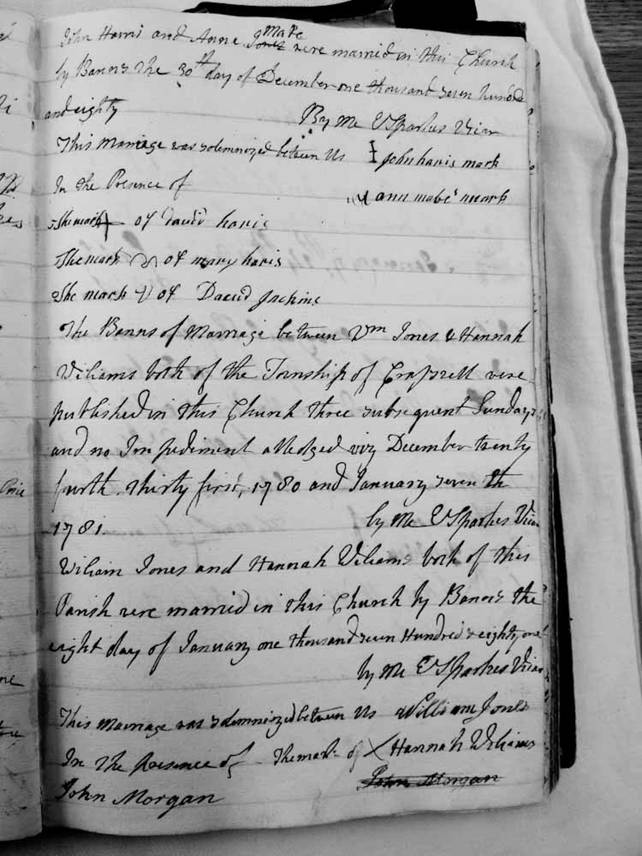 John Harris and Anne Jones were married in this Church
by Banns the 30th day of December one thousand seven hundred
and eighty
By Me E Sparkes Vicar
This Marriage was solemnized between Us John haris mark
In the Presence of
ann mabe mark
The mark of David haris
The mark of mary haris
The mark of David Jackins
The Banns of Marriage between Wm Jones & Hannah
Wiliams both of the Township of were
published in this Church three subsequent Sundays
and no Impediment alledged viz December twenty
fourth thirty first, 1780 and January seventh
1781
by Me E Sparkes Vicar
Wiliam Jones and Hannah Wiliams both of this
Parish were married in this Church by Banns the
eight day of January one thousand seven Hundred & eighty one
by Me E Sparkes Vicar
This Marriage was solemnized between Us William Jones
In the presence of The mark of X Hannah Wiliams
John Morgan
John Morgan